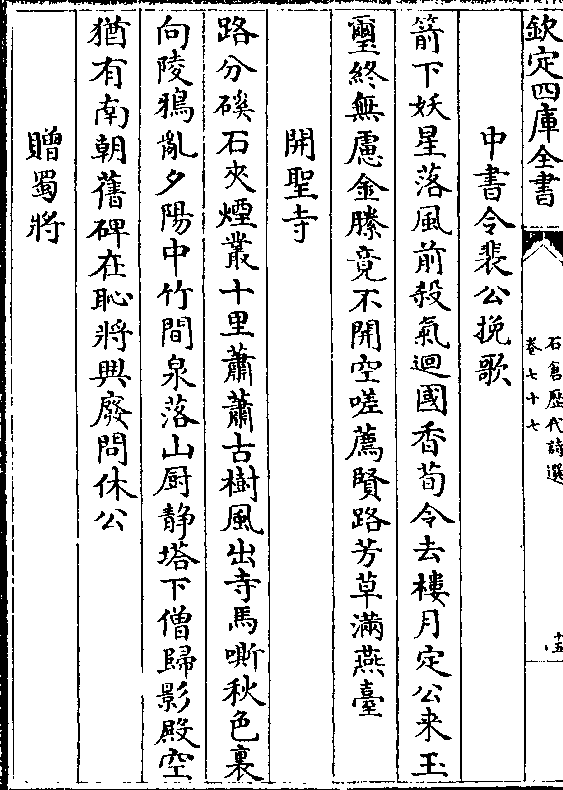 欽定四庫全書
石倉歷代詩選
卷七十七
十五
中書令裴公挽歌
箭下妖星落風前殺氣迴國香荀令去樓月定公來玉
璽終無慮金縢竟不開空嗟薦賢路芳草滿燕臺
開聖寺
路分磎石夾煙叢十里蕭蕭古樹風出寺馬嘶秋色裏
向陵鴉亂夕陽中竹間泉落山厨静塔下僧歸影殿空
猶有南朝舊碑在恥將興廢問休公
贈蜀將